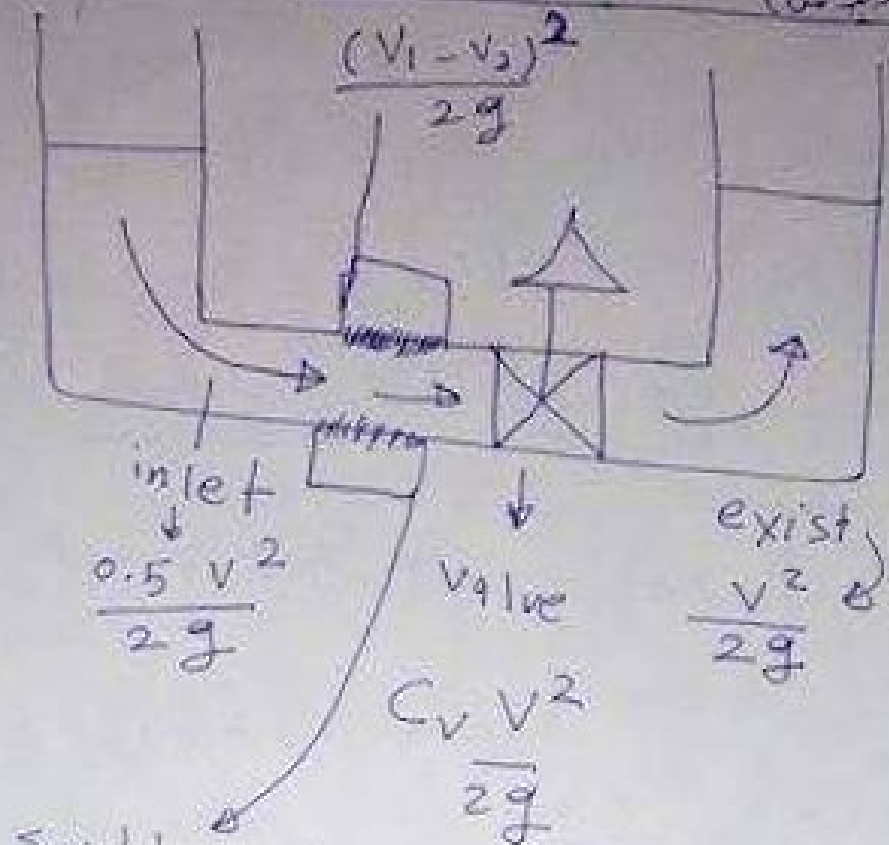 (V₁ - V₂)²
2g
inlet
0.5 V²
2g
Valve
C_v V²
2g
exist
V²
2g